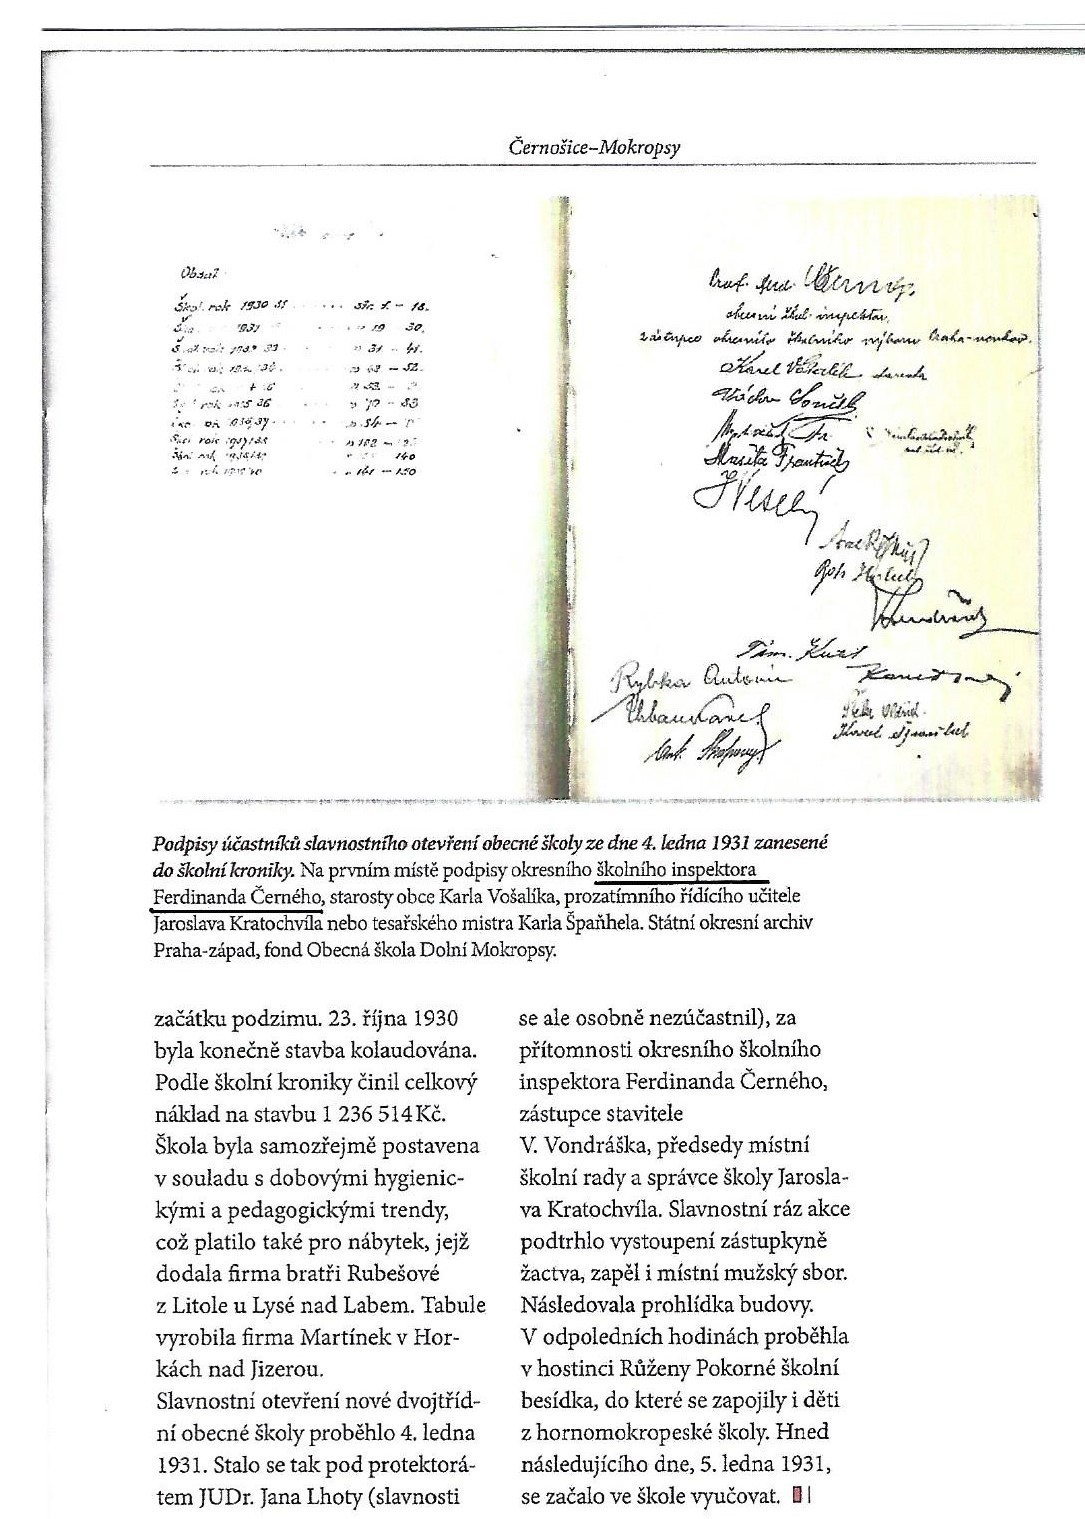 Černošice–Mokropsy
Obsah
Škol. rok 1930 31 str. 1. – 18.
1931 19 30.
31 – 41.
140
141 – 150
Prof. Ferd. Černý,
okresní škol. inspektor,
zástupce okresního školního výboru Praha-venkov.
Karel Vošalík starosta
Václav Souček
Mašita František
Veselý
Vondrášek
Rybka Antonín
Urban Karel
Ant. Škopový
Karel Španihel
Podpisy účastníků slavnostního otevření obecné školy ze dne 4. ledna 1931 zanesené
do školní kroniky. Na prvním místě podpisy okresního školního inspektora
Ferdinanda Černého, starosty obce Karla Vošalíka, prozatímního řídícího učitele
Jaroslava Kratochvíla nebo tesařského mistra Karla Špaňhela. Státní okresní archiv
Praha-západ, fond Obecná škola Dolní Mokropsy.
začátku podzimu. 23. října 1930
byla konečně stavba kolaudována.
Podle školní kroniky činil celkový
náklad na stavbu 1 236 514 Kč.
Škola byla samozřejmě postavena
v souladu s dobovými hygienic-
kými a pedagogickými trendy,
což platilo také pro nábytek, jejž
dodala firma bratři Rubešové
z Litole u Lysé nad Labem. Tabule
vyrobila firma Martínek v Hor-
kách nad Jizerou.
Slavnostní otevření nové dvojtříd-
ní obecné školy proběhlo 4. ledna
1931. Stalo se tak pod protektorá-
tem JUDr. Jana Lhoty (slavnosti
se ale osobně nezúčastnil), za
přítomnosti okresního školního
inspektora Ferdinanda Černého,
zástupce stavitele
V. Vondráška, předsedy místní
školní rady a správce školy Jarosla-
va Kratochvíla. Slavnostní ráz akce
podtrhlo vystoupení zástupkyně
žactva, zapěl i místní mužský sbor.
Následovala prohlídka budovy.
V odpoledních hodinách proběhla
v hostinci Růženy Pokorné školní
besídka, do které se zapojily i děti
z hornomokropeské školy. Hned
následujícího dne, 5. ledna 1931,
se začalo ve škole vyučovat.